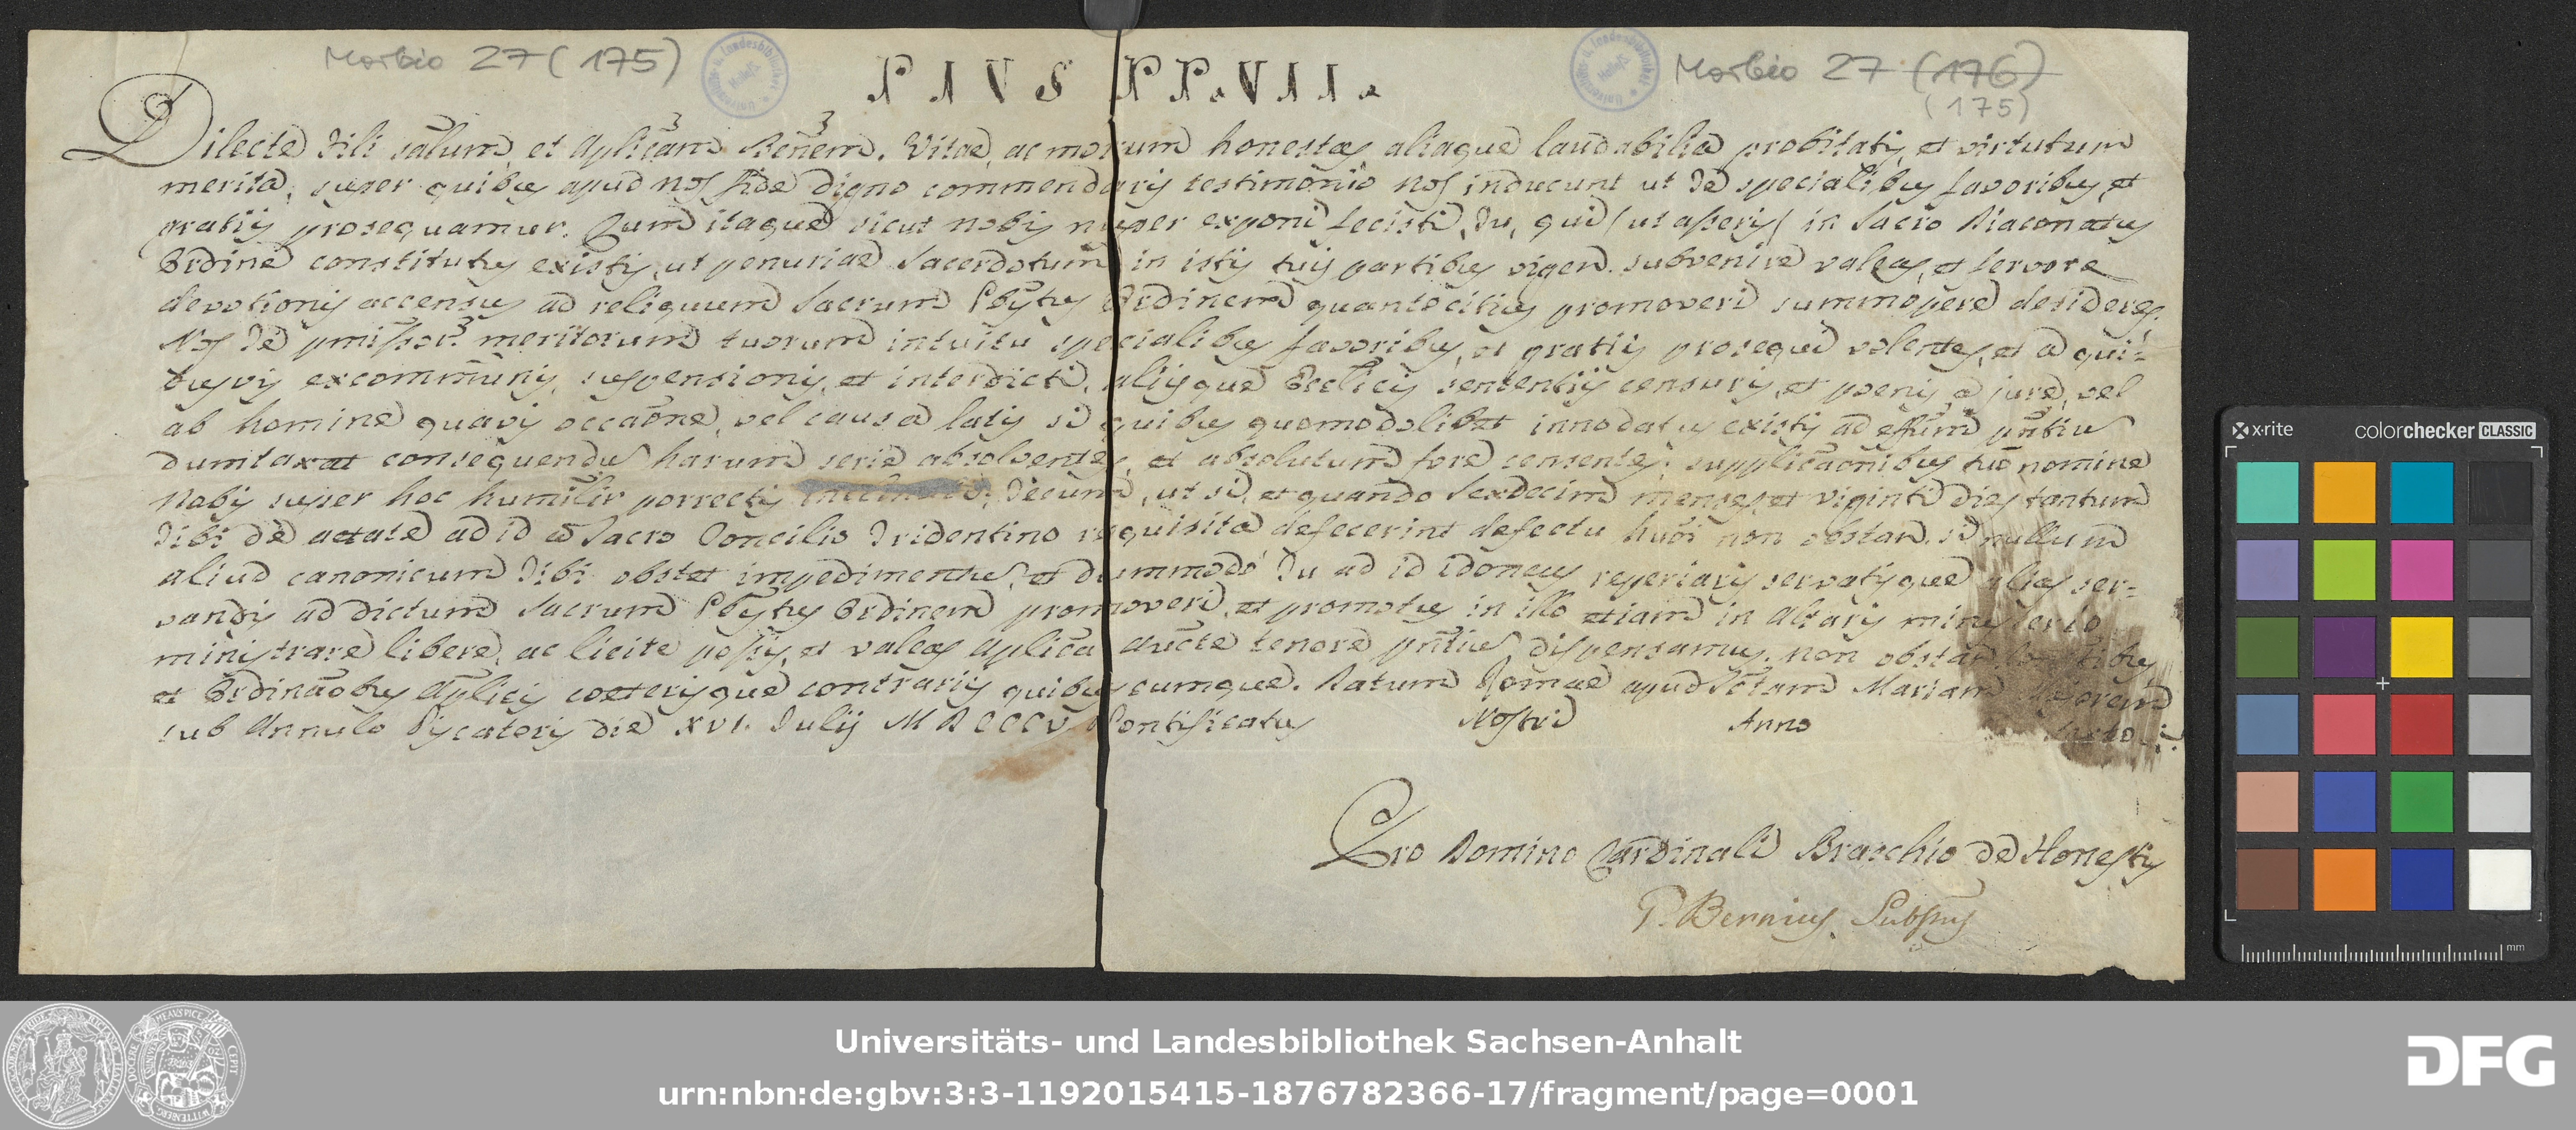 Morbio 27 (175)
Morbio 27 (176)
(175)
PIUS PP. VII.
Dilecte Fili salum, et Aplicam Benem. Vitae, ac morum honestas, aliaque laudabilia probitatis, et virtutum
merita, super quibus apud nos fide digno commendaris testimonio nos inducunt ut te specialibus favoribus, et
gratiis prosequamur. Cum itaque sicut nobis nuper exponi fecisti, Tu, qui (ut asseris) in Sacro Diaconatus
Ordine constitutus existis, ut penuriae Sacerdotum in istis tuis partibus vigen. subvenire valeas, et fervore
devotionis accensus ad reliquum Sacrum Pbytus Ordinem quantocitius promoveri summopere desideres.
Nos Te pmissor. meritorum tuorum intuitu specialibus favoribus, et gratiis prosequi volentes, et a qui-
busvis excommunis, suspensionis, et interdicti, aliisque Ecclicis sententiis censuris, et poenis a jure, vel
ab homine quavis occaone, vel causa latis si quibus quomodolibet innodatus existis ad effum pntiu
dumtaxat consequendu harum serie absolventes, et absolutum fore censentes; supplicaonibus tuo nomine
Nobis super hoc humilir porrectis inclinati; Tecum, ut si, et quando Sexdecim menses, et viginti dies tantum
Tibi de aetate ad id a Sacro Concilio Tridentino requisita defecerint defectu huoi non obstan. si nullum
aliud canonicum Tibi obstet impedimentu, et dummodo Tu ad id idoneus reperiaris servatisque alias ser-
vandis ad dictum Sacrum Pbytus Ordinem promoveri, et promotus in illo etiam in Altaris ministerio
ministrare libere, ac licite possis, et valeas Aplica aucte tenore pntiu dispensamus. non obstan.
et Ordinaobus Aplicis coeterisque contrariis quibuscumque. Datum Romae apud Sctam Mariam Majorem
sub Annulo Piscatoris die XVI. Julii MDCCCV. Pontificatus Nostri Anno Sexto.
Pro Domino Cardinali Braschio de Honestis
P. Bernius Subsrus
x·rite colorchecker CLASSIC
mm
Universitäts- und Landesbibliothek Sachsen-Anhalt
urn:nbn:de:gbv:3:3-1192015415-1876782366-17/fragment/page=0001
DFG